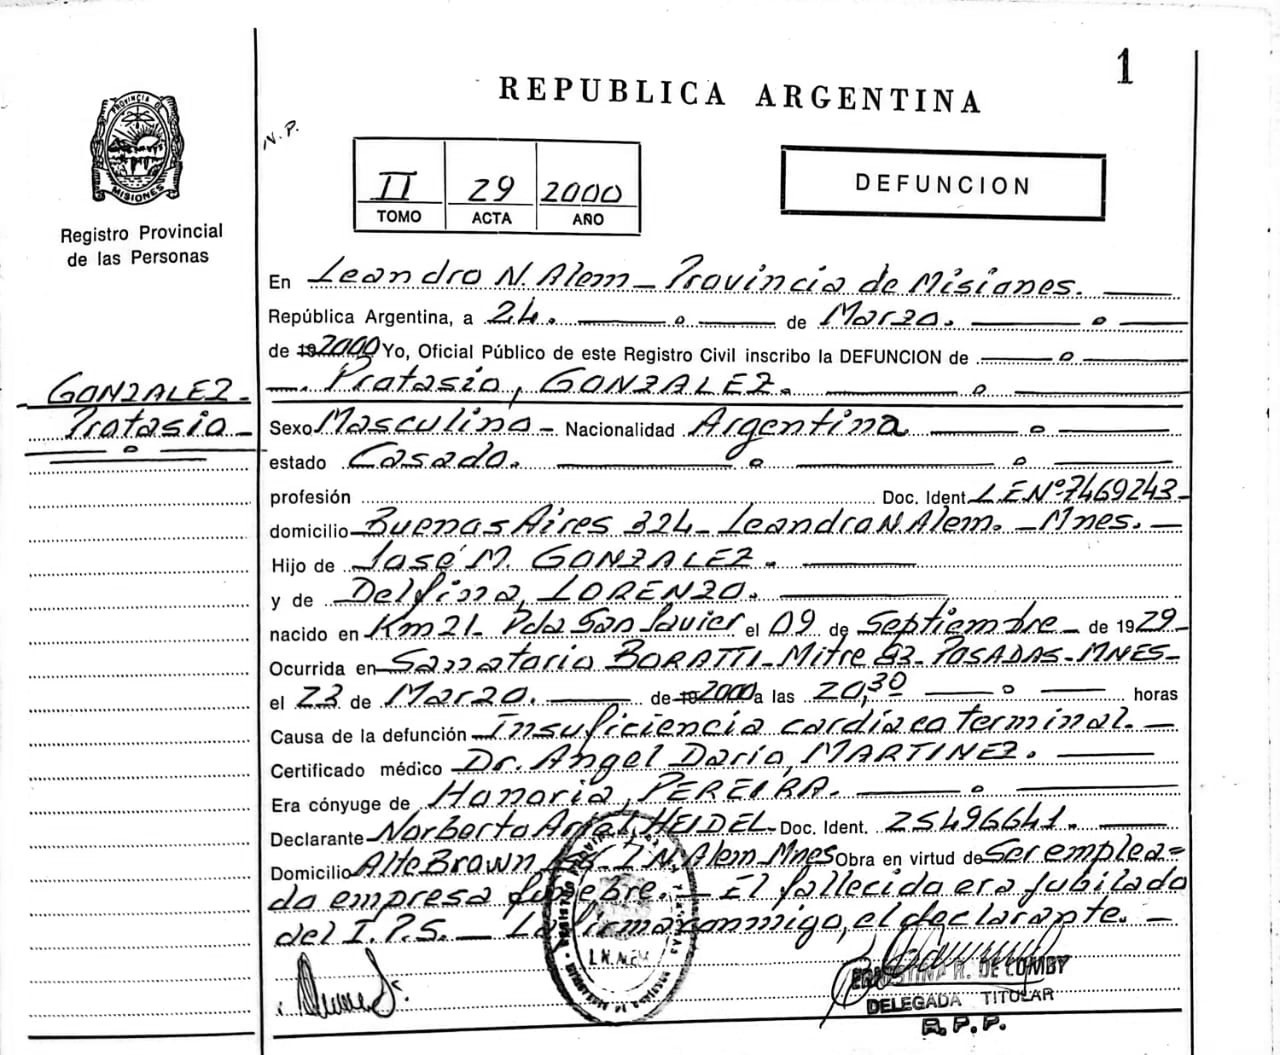 1
REPUBLICA ARGENTINA
PROVINCIA DE
MISIONES
Registro Provincial
de las Personas
N.P.
II 29 2000
TOMO ACTA AÑO
DEFUNCION
En Leandro N. Alem - Provincia de Misiones.
República Argentina, a 24. de Marzo.
de 19 2000 Yo, Oficial Público de este Registro Civil inscribo la DEFUNCION de
Protasio, GONZALEZ.
GONZALEZ.
Protasio
Sexo Masculino - Nacionalidad Argentina
estado Casado.
profesión Doc. Ident. L.E Nº 7469243
domicilio Buenas Aires 324 - Leandro N. Alem. - Mnes.
Hijo de José M. GONZALEZ.
y de Delfina, LORENZO.
nacido en Km 21 - Pda San Javier el 09 de Septiembre de 1929
Ocurrida en Sanatorio BORATTI - Mitre 83 - POSADAS - MNES -
el 23 de Marzo. de 19 2000 a las 20,30 horas
Causa de la defunción Insuficiencia cardiaca terminal.
Certificado médico Dr. Angel Dario, MARTINEZ.
Era cónyuge de Honoria, PEREIRA.
Declarante Norberto Ariel, HEIDEL - Doc. Ident. 25496641.
Domicilio Alte Brown L N. Alem Mnes Obra en virtud de Ser emplea=
do empresa fúnebre. - El fallecido era Jubilado
del I.P.S. - La firma conmigo, el declarante. -
L.N. ALEM
ERNESTINA R. DE COMBY
DELEGADA TITULAR
R.P.P.